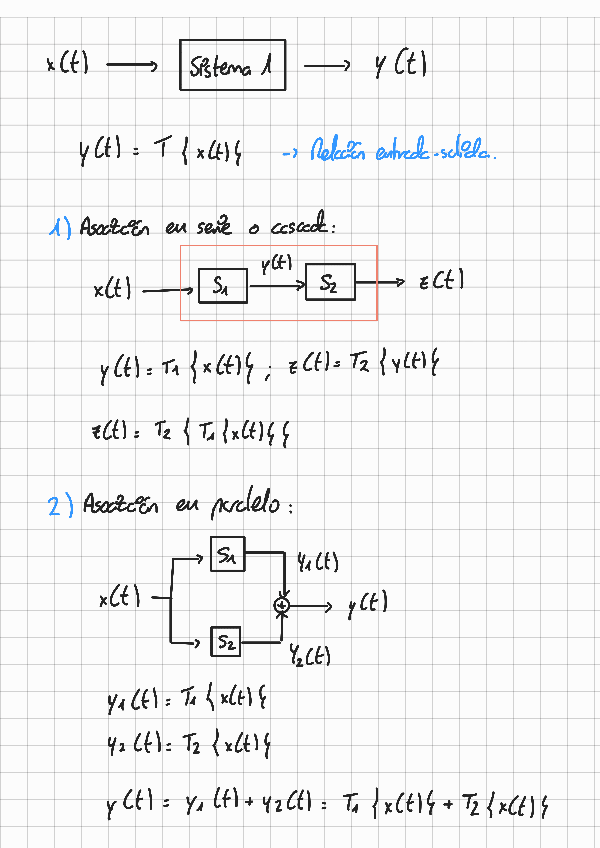 x(t) → Sistema 1 → y(t)
y(t) = T { x(t) } → Relación entrada-salida.
1) Asociación en serie o cascada:
x(t) → S1 y(t) → S2 → z(t)
y(t) = T1 { x(t) } ; z(t) = T2 { y(t) }
z(t) = T2 { T1 { x(t) } }
2) Asociación en paralelo:
S1
y1(t)
x(t) + → y(t)
S2
y2(t)
y1(t) = T1 { x(t) }
y2(t) = T2 { x(t) }
y(t) = y1(t) + y2(t) = T1 { x(t) } + T2 { x(t) }